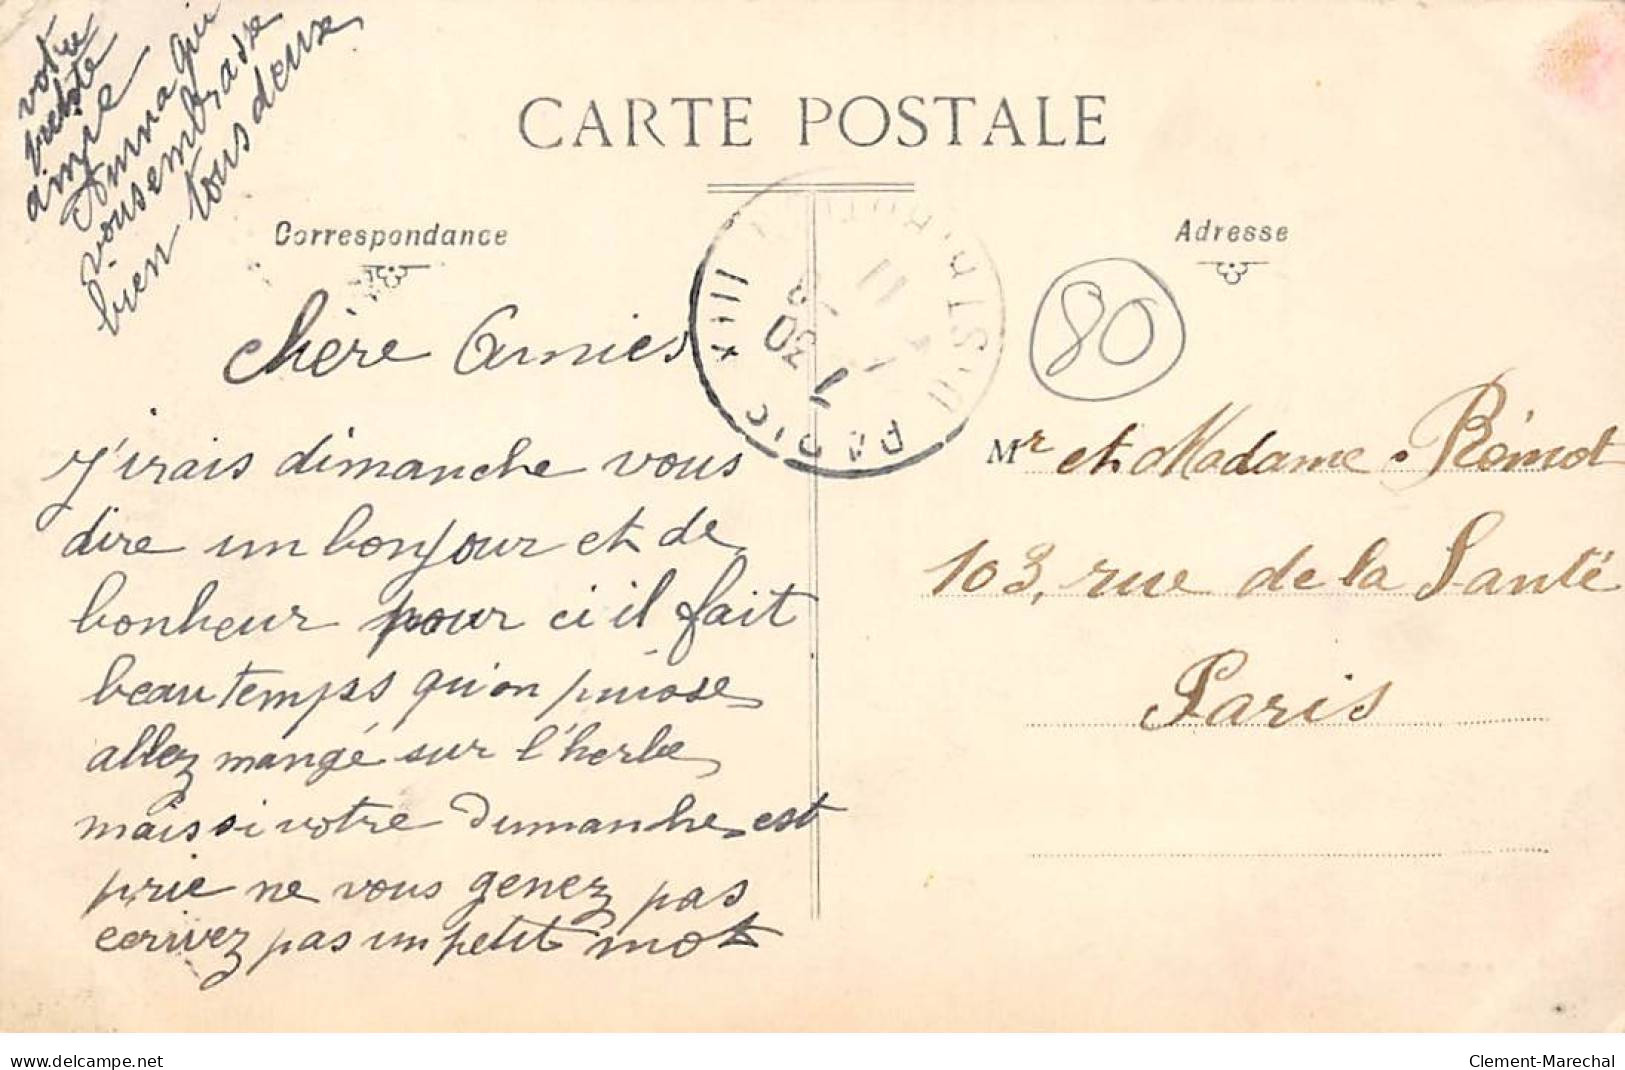 votre
petite
amie
Anna qui
vous embrasse
bien tous deux
CARTE POSTALE
Correspondance
Adresse
80
chère Amies
j'irais dimanche vous
dire un bonjour et de
bonheur pour ci il fait
beau temps qu'on puisse
allez mangé sur l'herbe
mais si votre Dimanche est
prie ne vous genez pas
ecrivez pas un petit mot
Mr et Madame Rémot
103, rue de la Santé
Paris
PARIS XIII
DISTRIBUTION
delcampe.net
Clement-Marechal